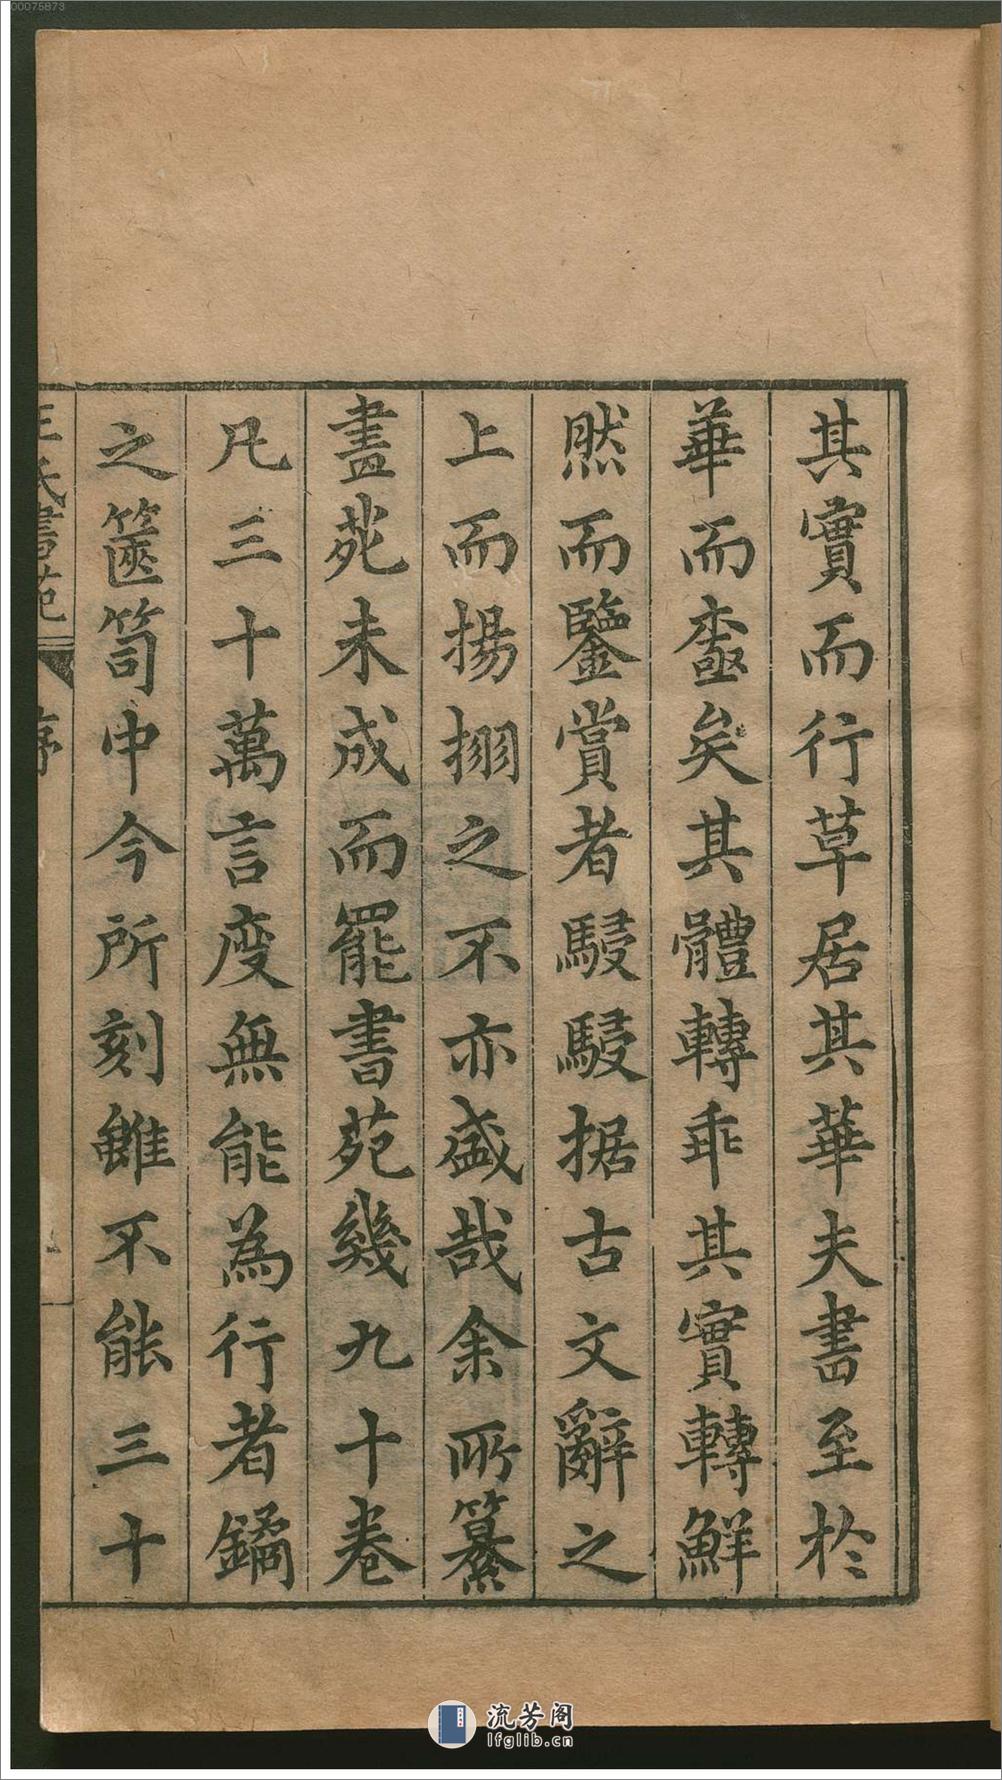 00075873
其實而行草居其華夫書至於
華而極矣其體轉乖其實轉鮮
然而鑒賞者駸駸据古文辭之
上而揚挧之不亦盛哉余所纂
畫苑未成而罷書苑幾九十卷
凡三十萬言度無能為行者鐍
之篋笥中今所刻雖不能三十
王氏書苑 序
流芳阁
lfglib.cn